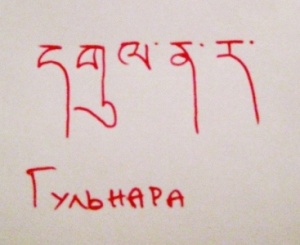 དགུལ་ན་ར་
Гульнара